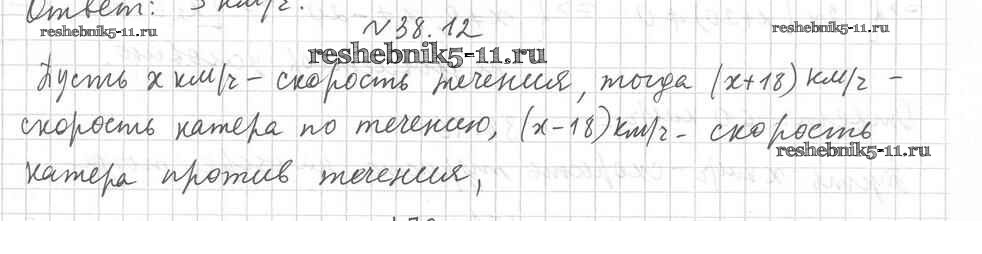 Ответ: 3 км/ч.
reshebnik5-11.ru
№38.12
reshebnik5-11.ru
reshebnik5-11.ru
Пусть x км/ч - скорость течения, тогда (x+18) км/ч -
скорость катера по течению, (x-18) км/ч - скорость
reshebnik5-11.ru
катера против течения,